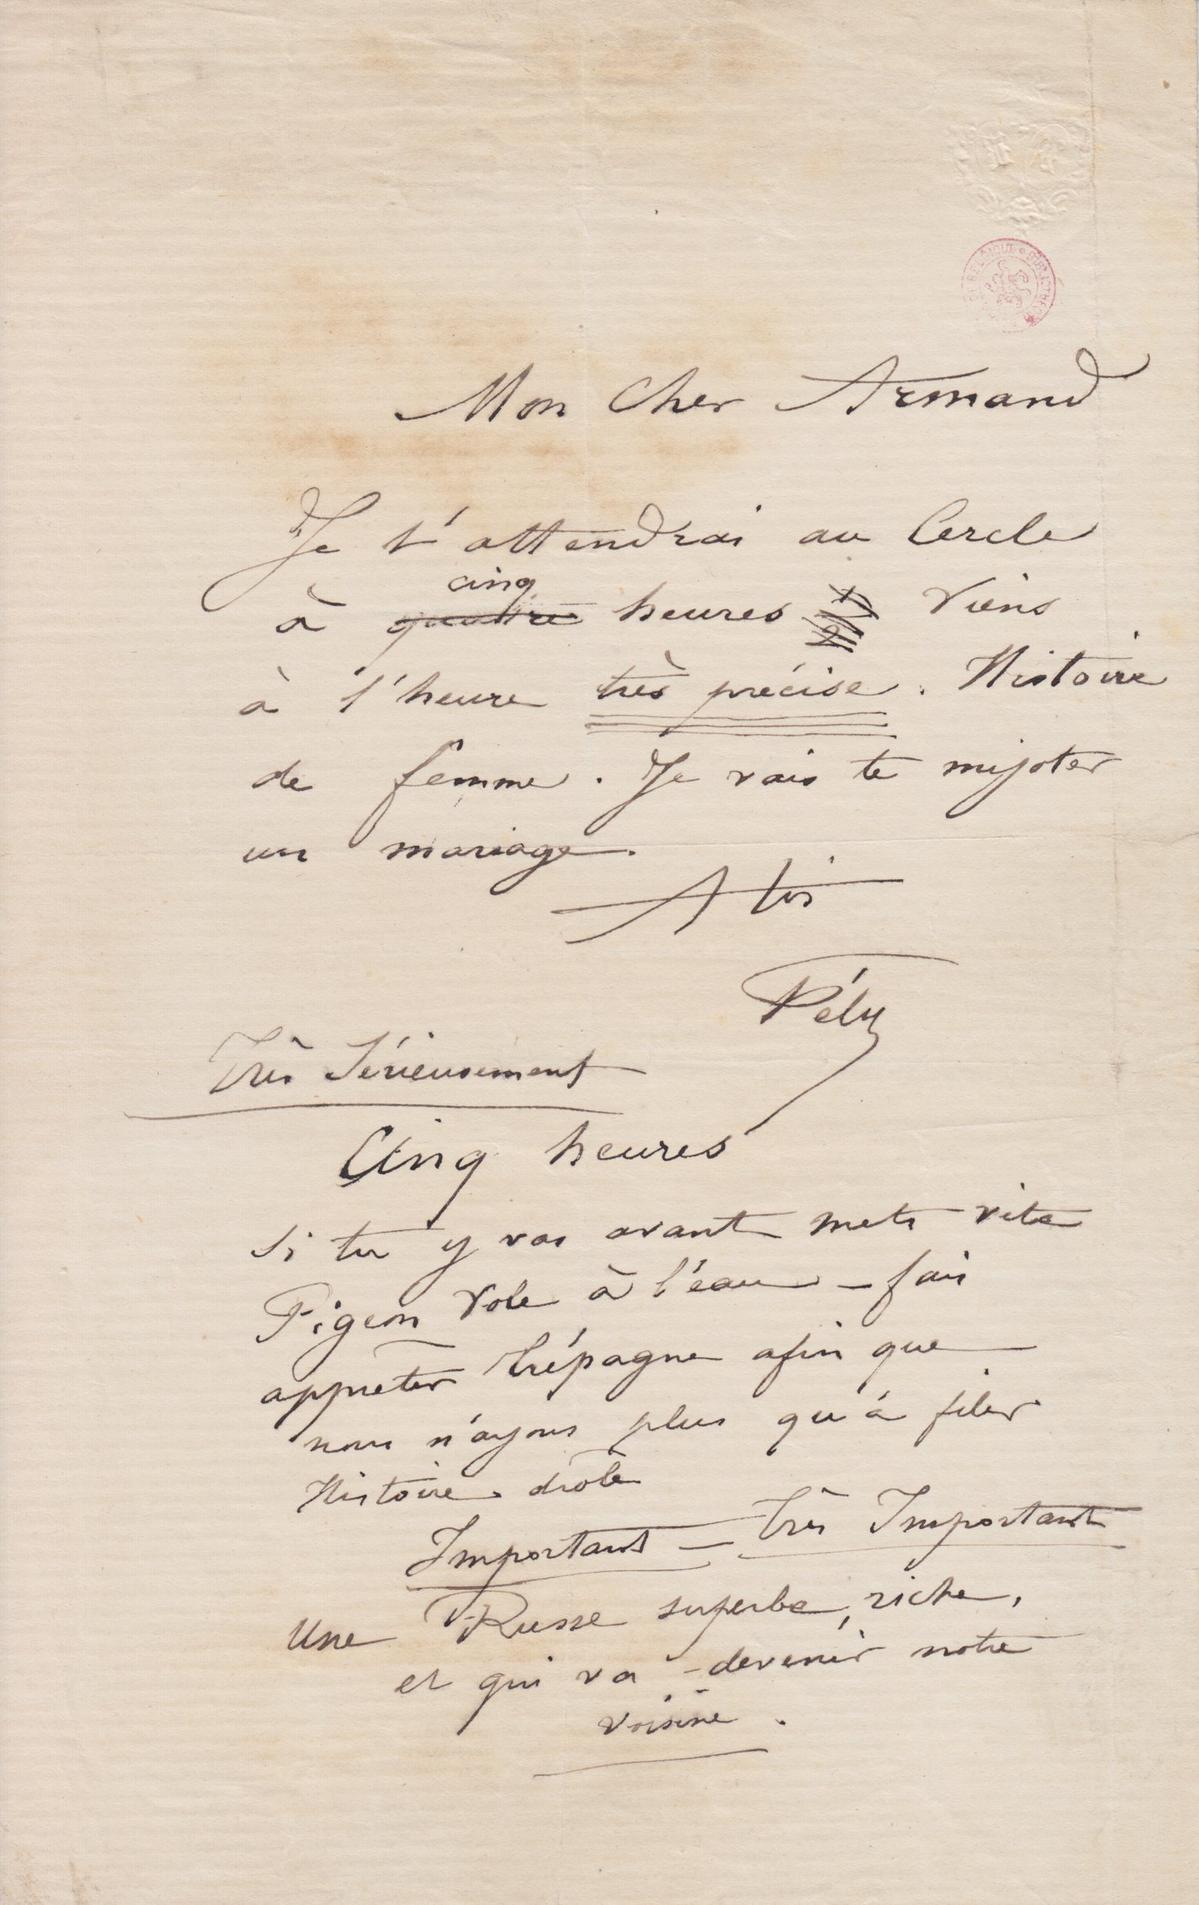 Mon Cher Armand
Je t'attendrai au Cercle
cinq
à quatre heures Viens
à l'heure très précise. Histoire
de femme. Je vais te mijoter
un mariage.
A toi
Fély
Très Sérieusement
Cinq heures
Si tu y vas avant mets vite
Pigeon Vole à l'eau – fais
appreter Trépagne afin que
nous n'ayons plus qu'à filer
Histoire drôle
Important – très Important
Une Russe superbe, riche,
et qui va devenir notre
voisine.